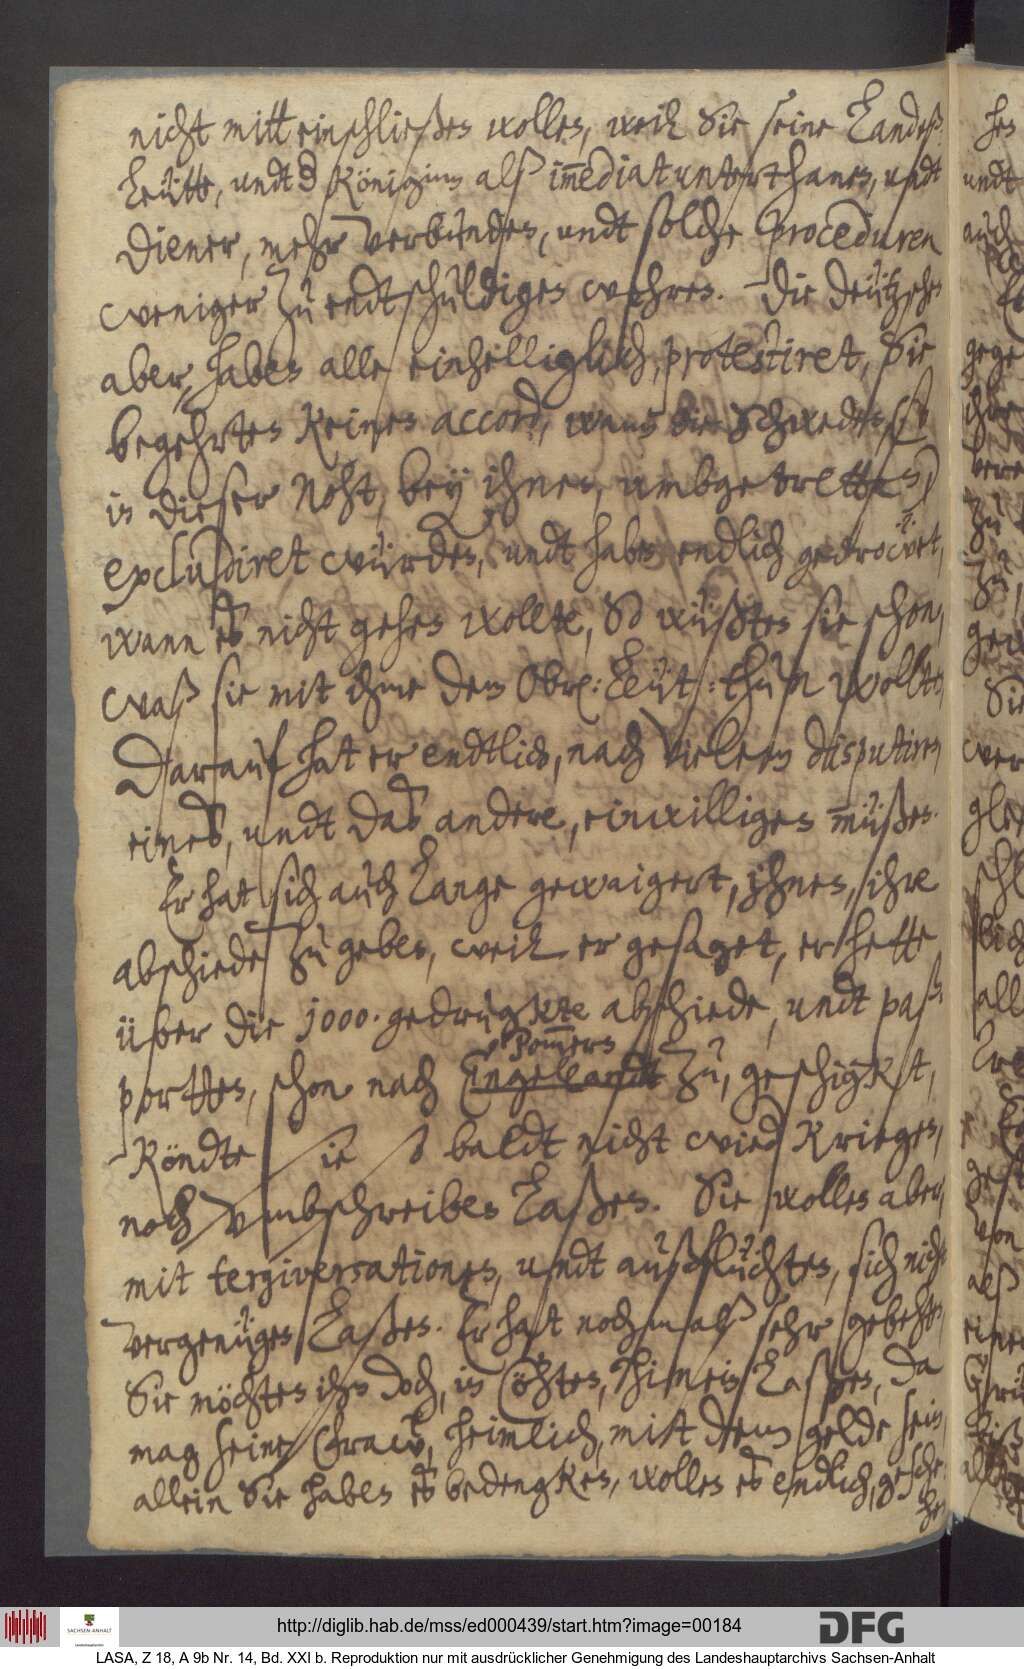 nicht mitt einschließen wollen, weil Sie seine Landeß¬
Leütte, undt d Königinn alß im̅ediat unterthanen, undt
Diener, mehr verbunden, undt solche Proceduren
weniger zu endtschuldigen wehren. Die deützschen
aber, haben alle einhelliglich, protestiret, Sie
begehrten keinen accord, wann die Schweden (so
in dieser Noht, bey ihnen, umbgetretten)
excludiret würden, undt haben endlich gedrowet,
wann es nicht gehen wollte, So wüßten sie schon,
waß sie mit ihme dem Obr: Leüt: thun wollten,
Darauf hat er endtlich, nach vielem disputiren
eines, undt das andere, einwilligen müßen.
Er hat sich auch Lange gewaigert, ihnen, ihre
abschiede zu geben, weil er gesaget, er hette
über die 1000. gedrugkte abschiede, undt paß¬
portten, schon nach Engellandt Pom̅ern zu, geschigkt,
Köndte sie so baldt nicht wied kriegen,
noch umbschreiben Laßen. Sie wollen aber,
mit tergiversationen, undt außflüchten, sich nicht
vergenügen Laßen. Er hat nochmalß sehr gebehten,
Sie möchten ihn doch, in Cöhten, hinein Laßen, da
mag seine Fraw, heimlich, mitt dem gelde sein,
allein Sie haben es bedengken, wollen es endlich, gesche¬
hen
hes
undt
auch
gege
ihre
vere
zu
zu,
gew
Sie
wer
gle
schl
lich
all
gest
von
alß
einer
http://diglib.hab.de/mss/ed000439/start.htm?image=00184
SACHSEN-ANHALT
Landeshauptarchiv
DFG
LASA, Z 18, A 9b Nr. 14, Bd. XXI b. Reproduktion nur mit ausdrücklicher Genehmigung des Landeshauptarchivs Sachsen-Anhalt